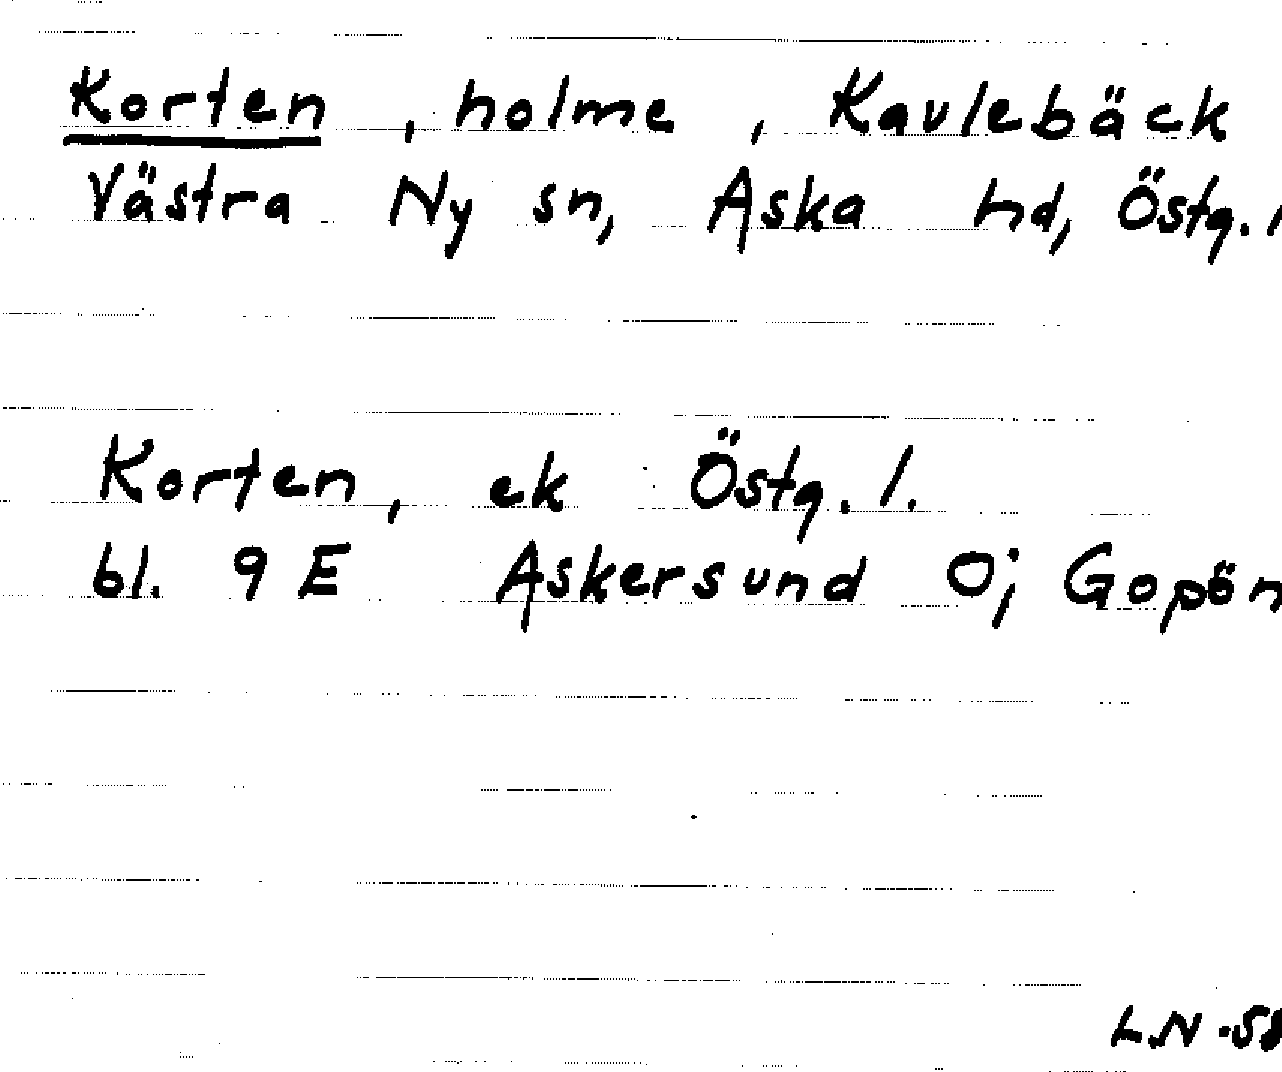 Korten, holme, Kavlebäck
Västra Ny sn, Aska hd, Östg. l
Korten, ek Östg. l.
bl. 9 E Askersund O; Gopön